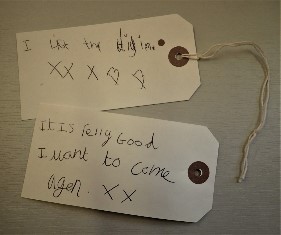 I like the
XX X
It Is relly Good
I want to come
agen. XX